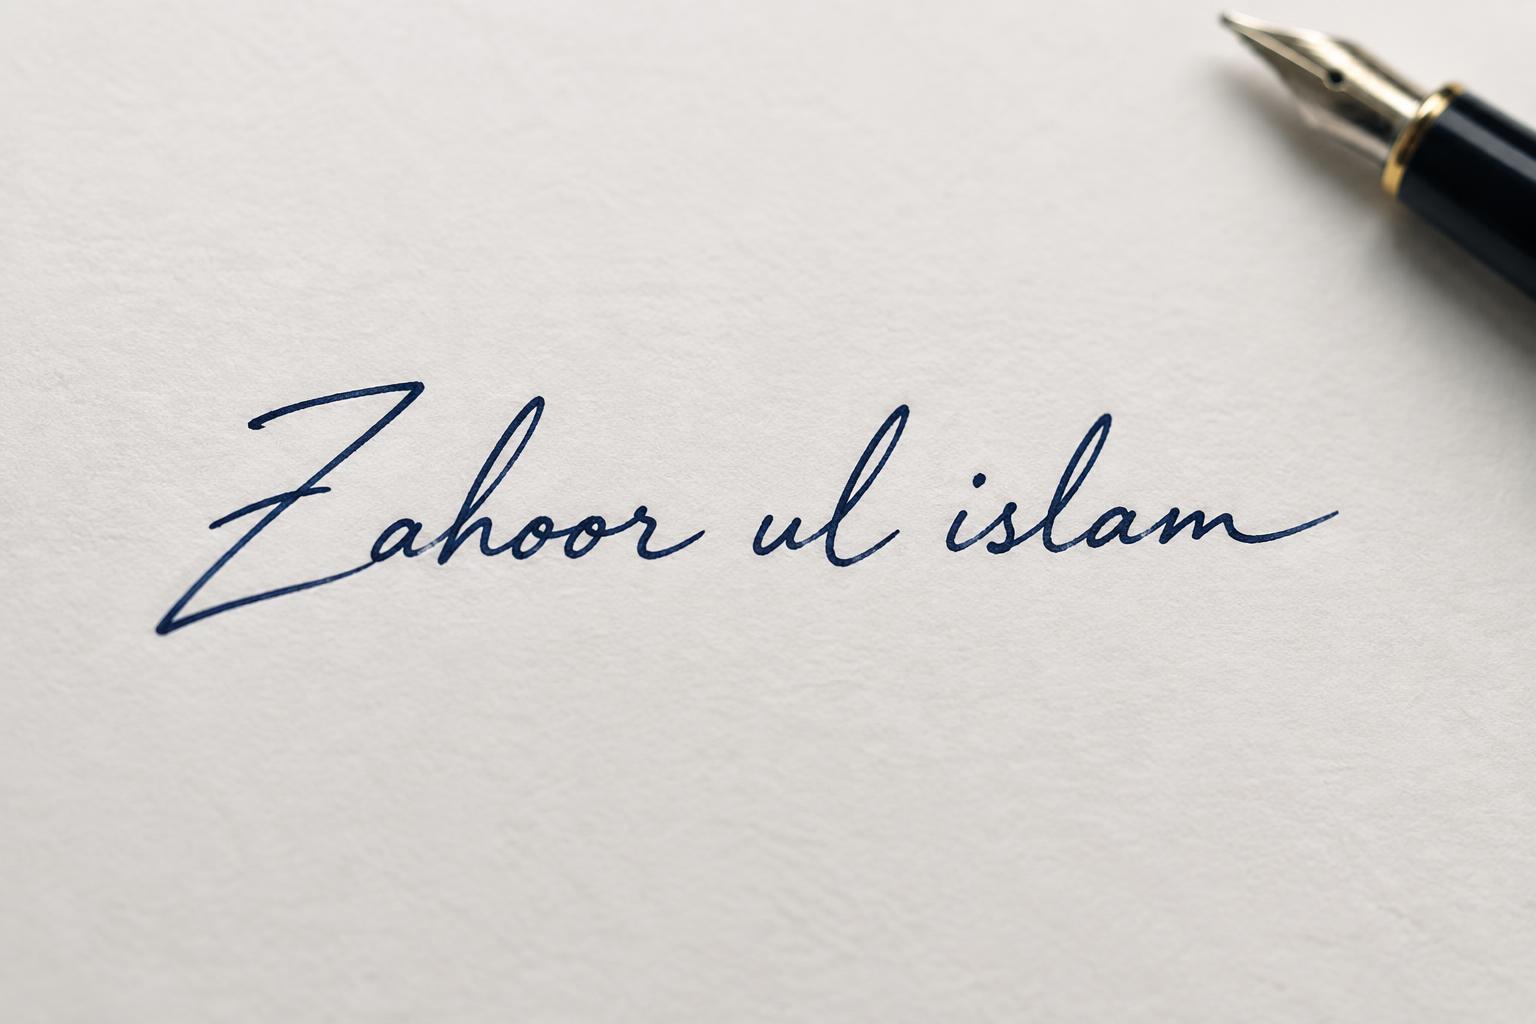 Zahoor ul islam